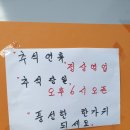 추석 연휴, 정상영업
추석 당일,
오후 6시 오픈
풍성한 한가위
되세요.